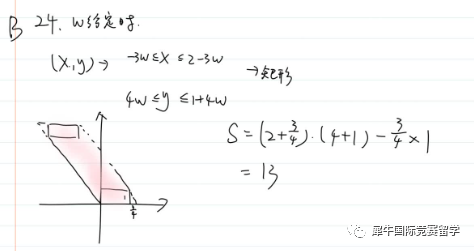 B 24. w给定时.
(x,y)→ -3w≤x≤2-3w
→矩形
4w≤y≤1+4w
S=(2+3/4)·(4+1)-3/4×1
=13
犀牛国际竞赛留学